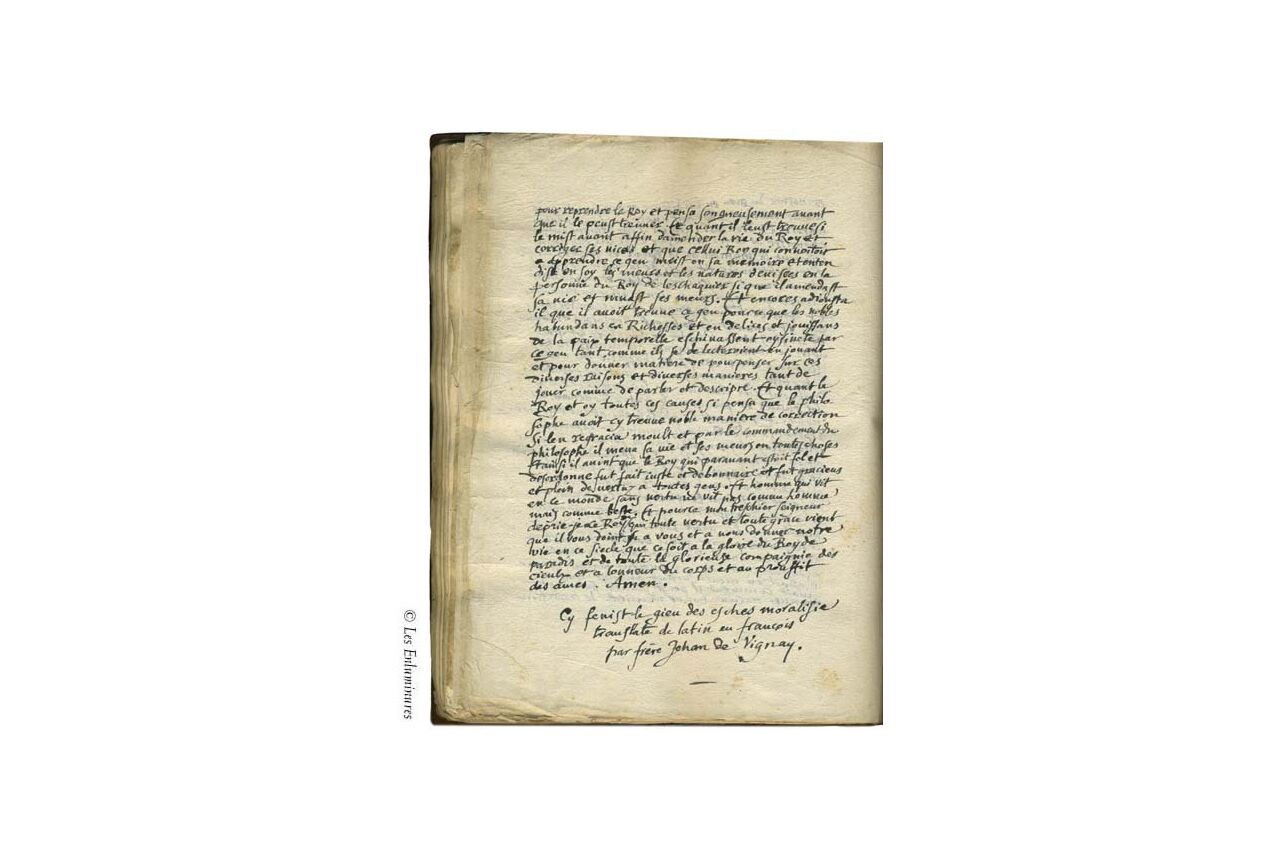 pour reprendre le Roy et pensa songneusement avant
que il le peust treuver Et quant il leust treuve si
le mist avant affin damender la vie du Roy et
corriger ses vices et que cellui Roy qui convoitoit
a apprendre se geu meist en sa memoire et enten
dist en soy les meurs et les natures devisees en la
personne du Roy de leschaquier si que il amendast
sa vie et muast ses meurs. Et encores adiousta
il que il avoit treuve ce geu pource que les nobles
habundans en Richesses et en delices et jouissans
de la paix temporelle eschivassent oysivete par
ce geu tant comme ilz se delecteroient en jouant
et pour donner matiere de pourpenser sur ces
diverses raisons et diverses manieres tant de
jouer comme de parler et descripre. Et quant le
Roy et oy toutes ces causes si pensa que le philo
sophe avoit cy treuve noble maniere de correction
Si len regracia moult et par le commandement du
philosophe il mena sa vie et ses meurs en toutes choses
Et ainsi il avint que le Roy qui paravant estoit fol et
desordonne fut fait iuste et debonnaire et fut gracieux
et plein de vertuz a toutes gens. Et homme qui vit
en ce monde sans vertu ne vit pas comme homme
mais comme beste. Et pource mon treschier seigneur
deprie je le Roy qui toute vertu et toute grace vient
que il vous doint a vous et a nous donner notre
vie en ce siecle que ce soit a la gloire du Roy de
paradis et de toute la glorieuse compaignie des
cieulx et a lonneur du corps et au prouffit
des ames. Amen.
Cy fenist le gieu des esches moralisie
translate de latin en françois
par frère Jehan de Vignay.
© Les Enluminures